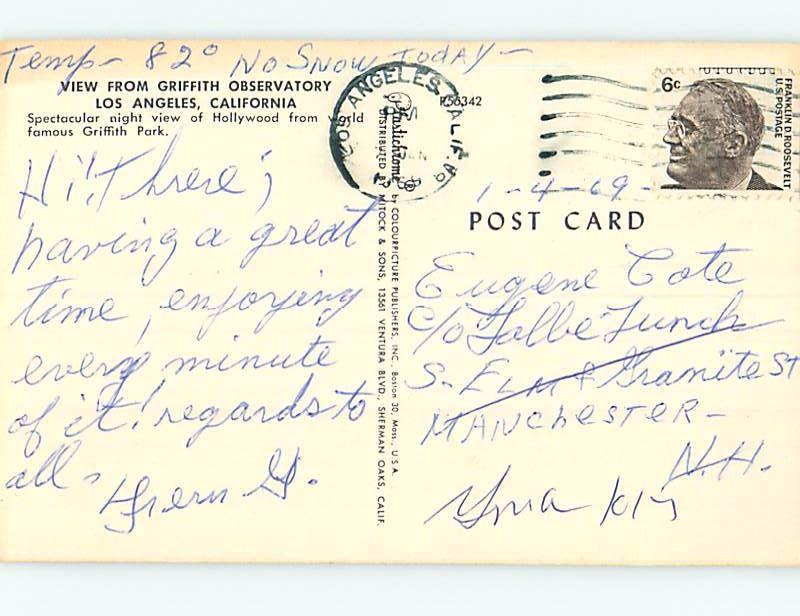 Temp - 82° No Snow Today -
VIEW FROM GRIFFITH OBSERVATORY
LOS ANGELES, CALIFORNIA
Spectacular night view of Hollywood from world
famous Griffith Park.
Hi! there;
having a great
time, enjoying
every minute
of it! regards to
all -
G.
Plastichrome ® by COLOURPICTURE PUBLISHERS, INC. Boston 30, Mass., U.S.A.
DISTRIBUTED BY MITOCK & SONS, 13561 VENTURA BLVD., SHERMAN OAKS, CALIF.
LOS ANGELES, CALIF
P56342
6c
FRANKLIN D. ROOSEVELT
U.S. POSTAGE
1-4-69-
POST CARD
Eugene Cote
C/o Lunch
S. Elm & Granite St
MANCHESTER -
N.H.